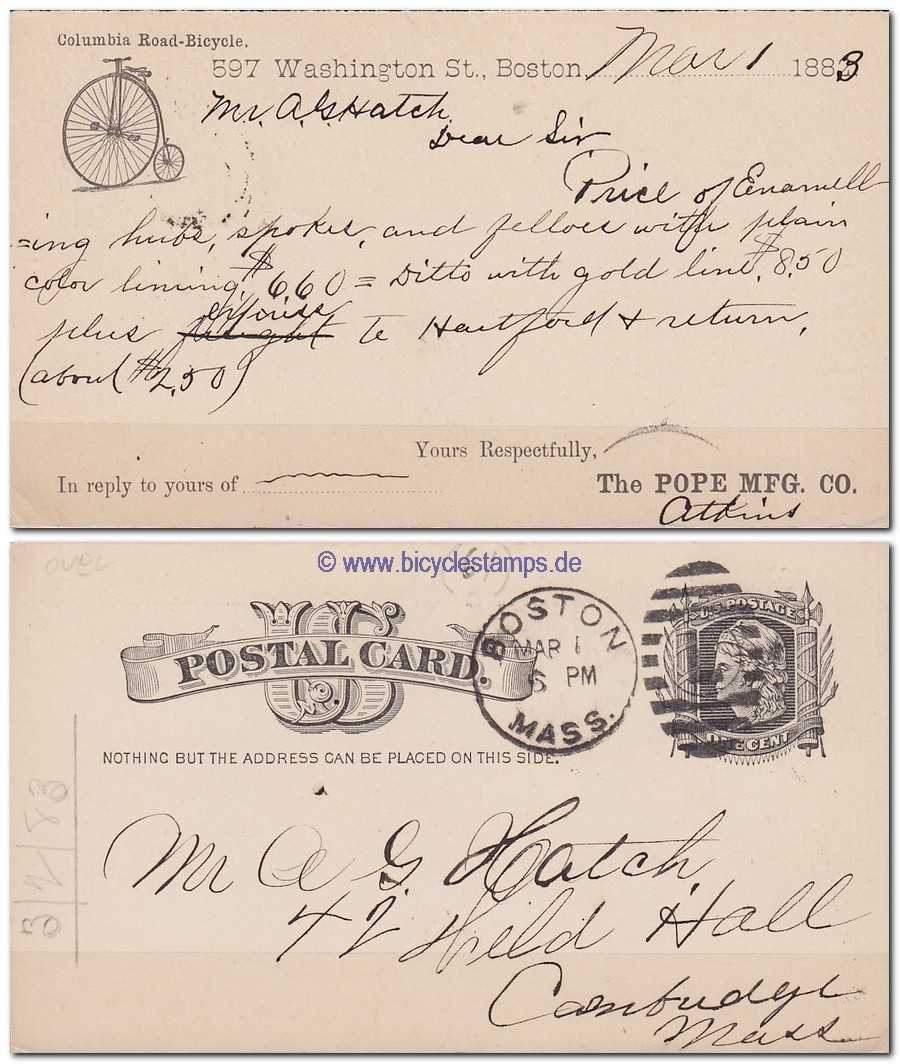 Columbia Road-Bicycle.
597 Washington St., Boston, Mar 1 1883
Mr. A G Hatch
Dear Sir
Price of Enamell
=ing hubs, spokes, and felloes with plain
color lining $6.60 = Ditto with gold line $8.50
express
plus freight to Hartford & return,
(about $2.50)
Yours Respectfully,
In reply to yours of
The POPE MFG. CO.
Atkins
© www.bicyclestamps.de
OVal
(51)
US
POSTAL CARD.
BOSTON
MAR 1
6 PM
MASS.
U.S. POSTAGE
ONE CENT
NOTHING BUT THE ADDRESS CAN BE PLACED ON THIS SIDE.
3/2/83
Mr A G Hatch
42 Weld Hall
Cambridge
Mass